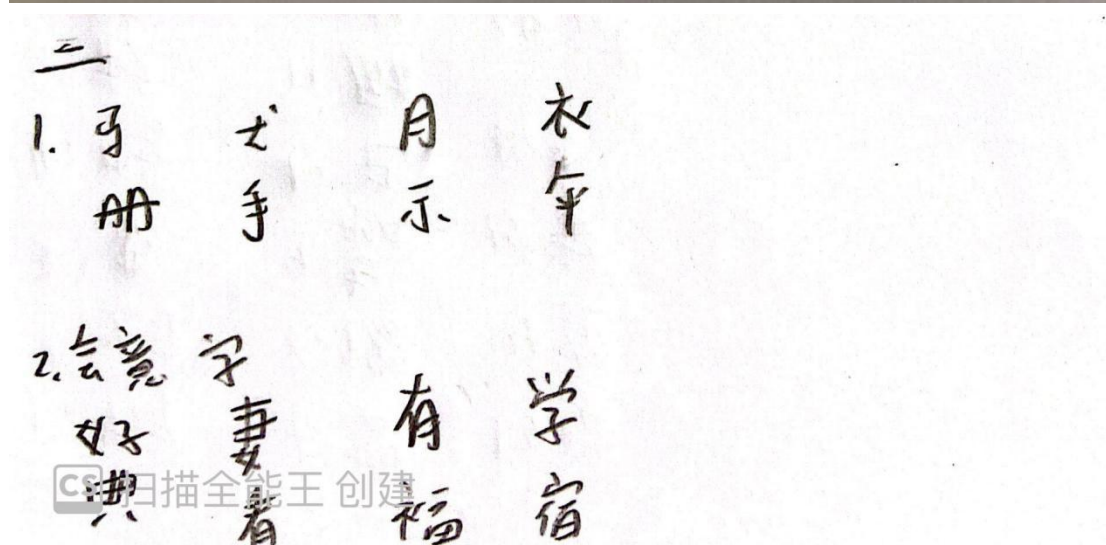 三
1. 马 犬 月 衣
册 手 示 伞
2. 会意字
好 妻 有 学
典 着 福 宿
CS 扫描全能王 创建